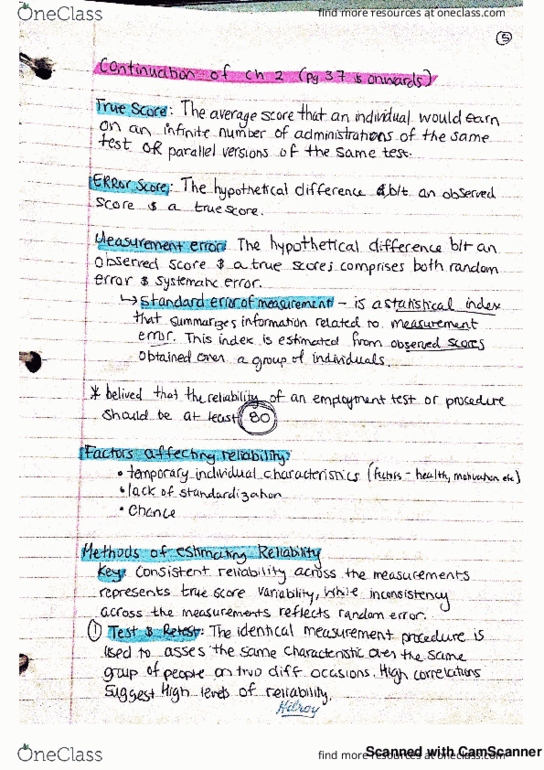 OneClass
find more resources at oneclass.com
5
Continuation of ch 2 (pg 37 & onwards)
True Score: The average score that an individual would earn
on an infinite number of administrations of the same
test OR parallel versions of the same test.
ERROR Score: The hypothetical difference b/t an observed
score & a true score.
Measurement error: The hypothetical difference b/t an
observed score & a true score; comprises both random
error & systematic error.
↳ Standard error of measurement - is a statistical index
that summarizes information related to measurement
error. This index is estimated from observed scores
obtained over a group of individuals.
* belived that the reliability of an employment test or procedure
should be at least 80
Factors affecting reliability:
• temporary individual characteristics (factors - health, motivation etc)
• lack of standardization
• chance
Methods of estimating Reliability
Key: Consistent reliability across the measurements
represents true score variability, while inconsistency
across the measurements reflects random error.
① Test & Retest: The identical measurement procedure is
used to asses the same characteristic over the same
group of people on two diff occasions. High correlations
suggest High levels of reliability.
Hilroy
OneClass
find more resources at oneclass.com
Scanned with CamScanner